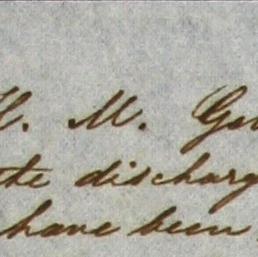 H. M. Go
the discharg
have been